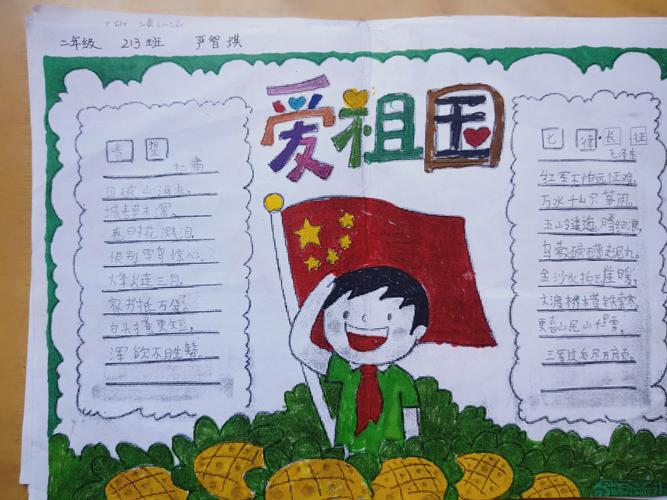 二年级 213班 严智琪
爱祖国
春望
杜甫
国破山河在,
城春草木深。
感时花溅泪,
恨别鸟惊心。
烽火连三月,
家书抵万金。
白头搔更短,
浑欲不胜簪。
七律·长征
毛泽东
红军不怕远征难,
万水千山只等闲。
五岭逶迤腾细浪,
乌蒙磅礴走泥丸。
金沙水拍云崖暖,
大渡桥横铁索寒。
更喜岷山千里雪,
三军过后尽开颜。